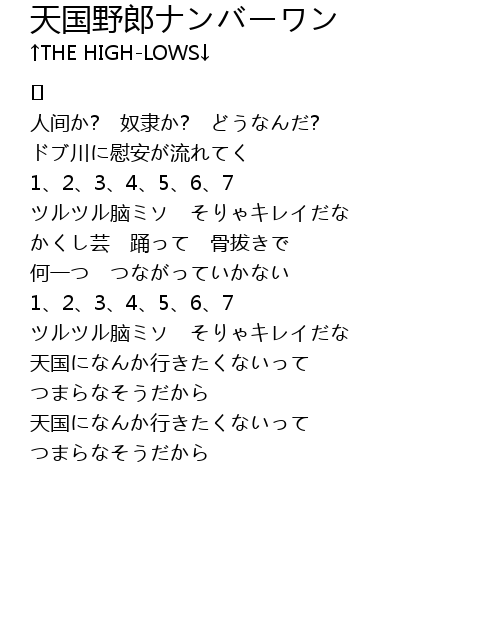 天国野郎ナンバーワン
↑THE HIGH-LOWS↓
[]
人间か?　奴隶か?　どうなんだ?
ドブ川に慰安が流れてく
1、2、3、4、5、6、7
ツルツル脑ミソ　そりゃキレイだな
かくし芸　踊って　骨拔きで
何一つ　つながっていかない
1、2、3、4、5、6、7
ツルツル脑ミソ　そりゃキレイだな
天国になんか行きたくないって
つまらなそうだから
天国になんか行きたくないって
つまらなそうだから